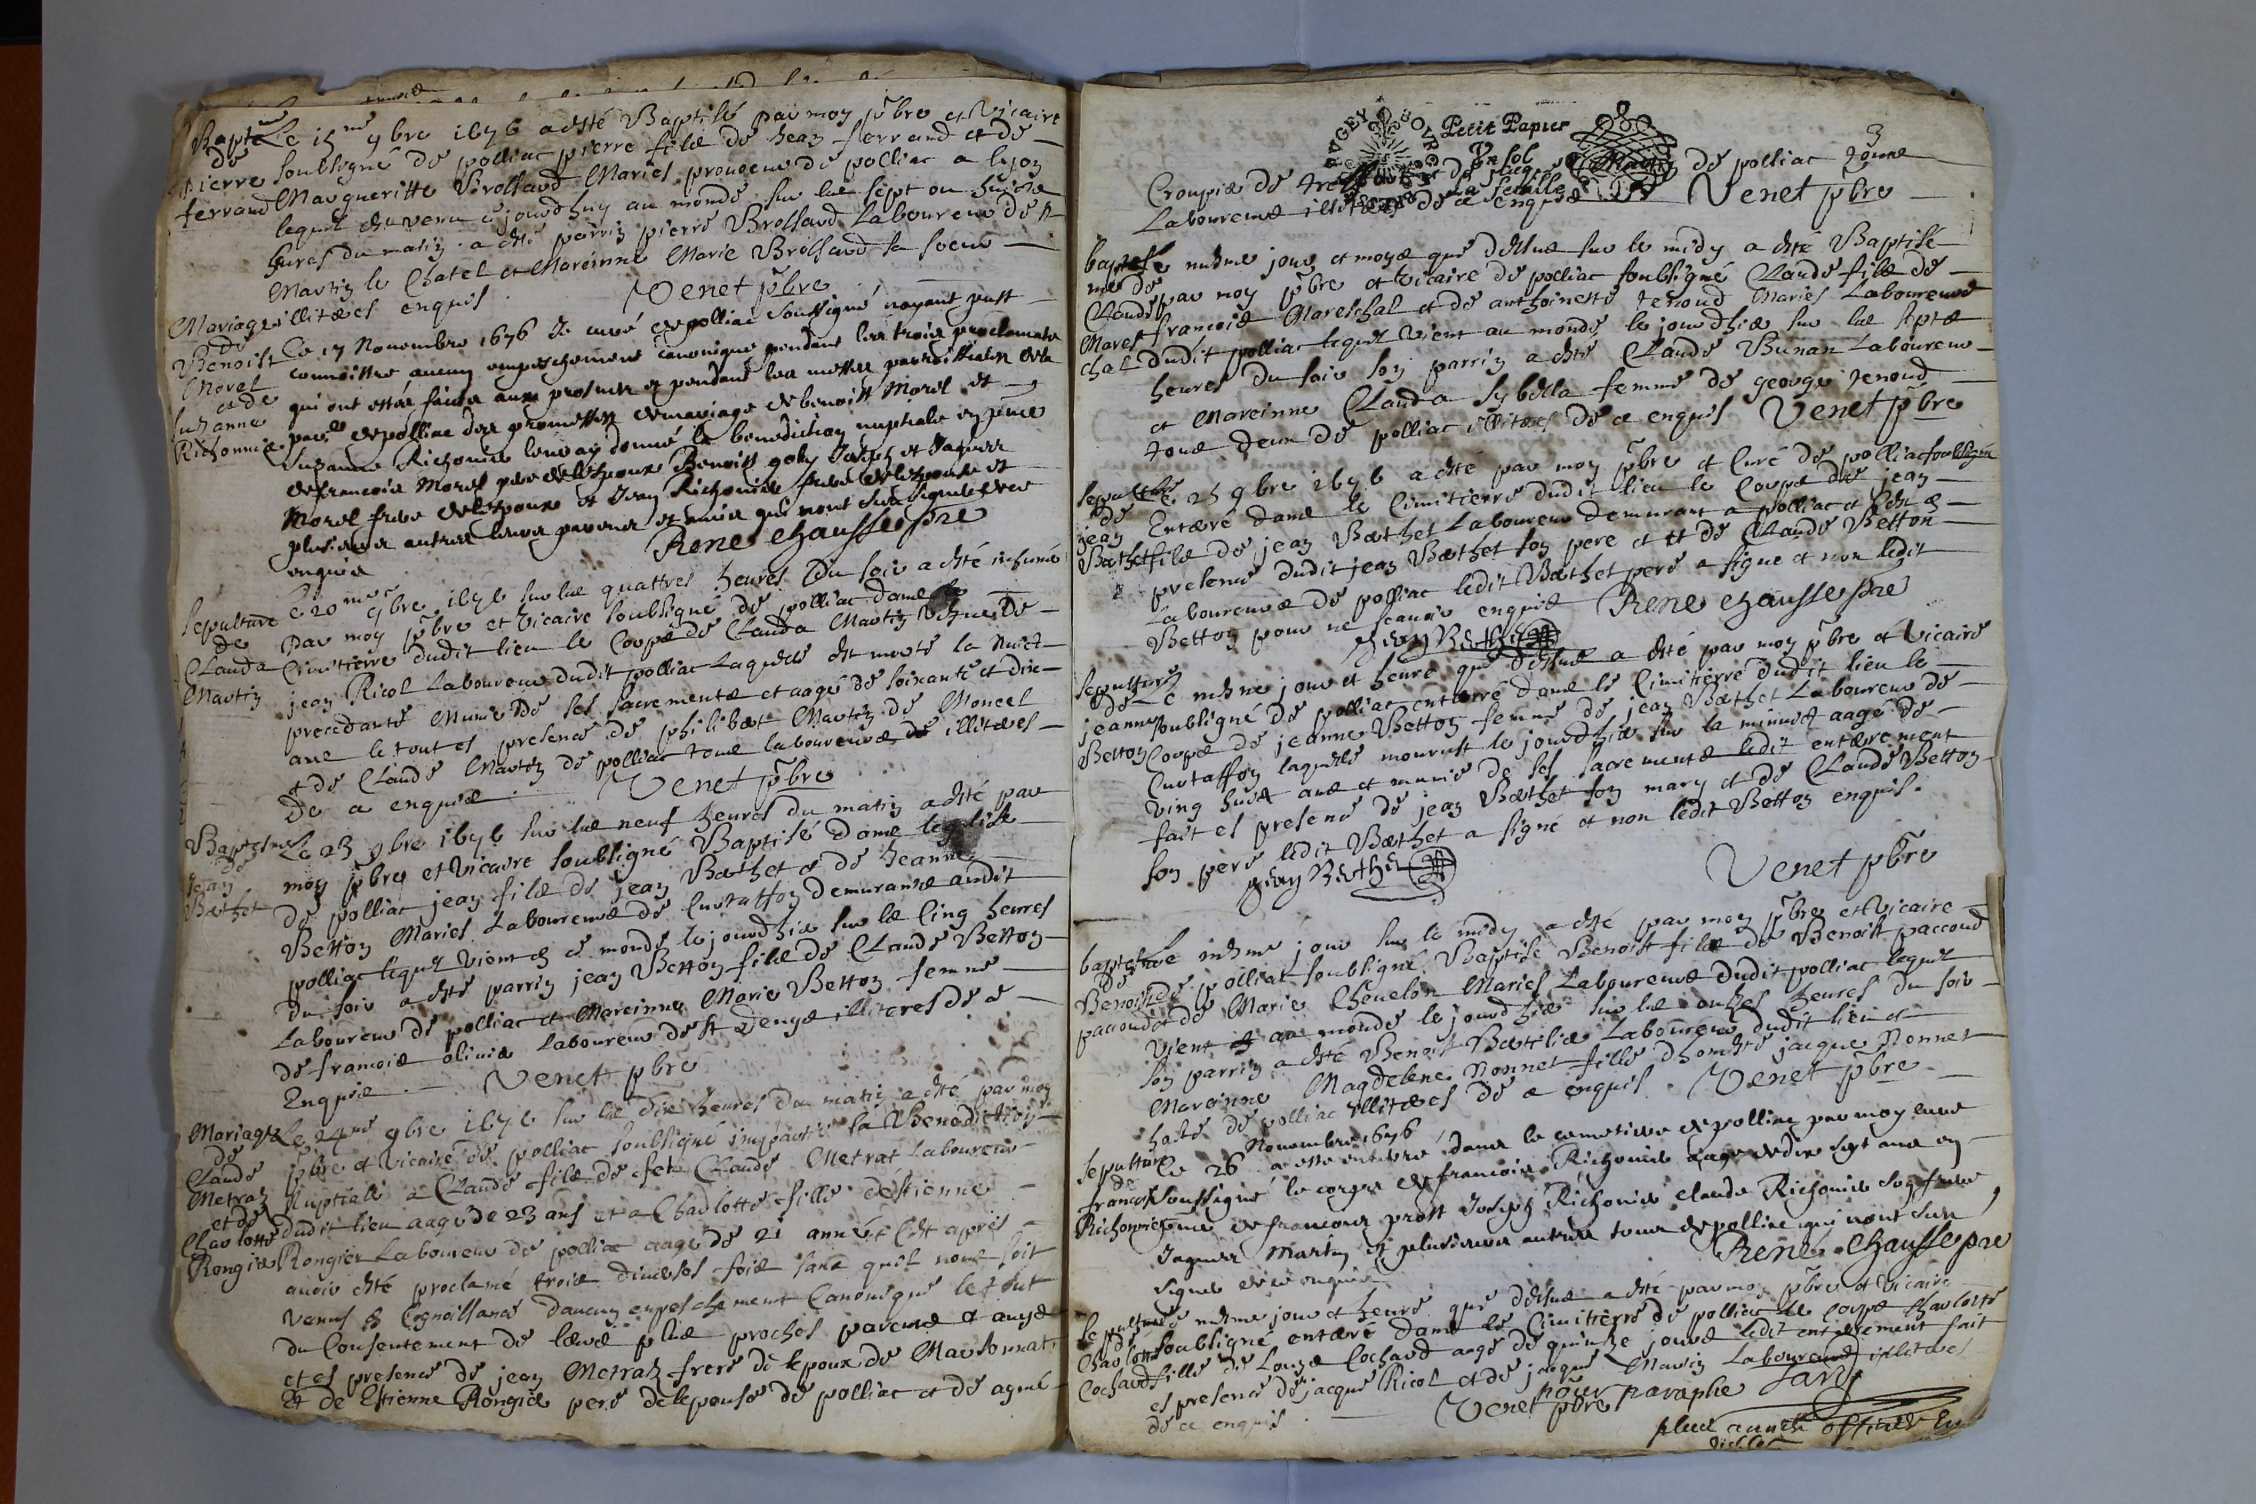 Bapte
de
pierre
ferrand
Le 15me 9bre 1676 a esté Baptisé par moy pbre et Vicaire
soubsigné de polliac pierre filz de Jean ferrand et de
Margueritte Brossard Mariés
lequel est venu ce jourdhuy au monde sur les sept ou huict
heures du matin a esté parrin pierre Brossard Laboureur de St
Martin le Chatel et Mareinne Marie Brossard sa soeur
illiterés enquis
Venet pbre
Mariage
de
Benoist
Morel
et de
Suzanne
Richonnier
Ce 17 Novembre 1676 Je curé de polliac soussigné nayant peust
connoittre aucun empeschement canonique pendant les trois proclamata
qui ont estés faitte aux prosnes et pendant les messes parroissialle de la
par de polliac des promesses de mariage de benoist Morel et
Suzanne Richonier leur ay donné la benediction nuptiale en pnce
de francois Morel pere de lespoux Benoist goly Joseph et Jaques
Morel frere de lespoux et Jean Richonier frere de lespouse et
plusieurs autres leurs parens et amis qui nont sceu signer de ce
enquis
Rene chaussepre
Sepulture
de
Clauda
Martin
Le 20me 9bre 1676 sur les quattres heures du soir a esté inhumé
par moy pbre et Vicaire soubsigné de polliac dans le
Cimitierre dudit lieu le Corps de Clauda Martin vefue de
jean Ricol Laboureur dudit polliac Laquelle est morte la Nuict
precedante Munie de ses sacrements et aagé de soixante et dix
ans le tout es presence de philibert Martin de Moncel
et de Claude Martin de polliac tous laboureurs illiterés
de ce enquis
Venet pbre
Baptesme
de
jean
Bethet
Le 23 9bre 1676 sur les neuf heures du matin a esté par
moy pbre et Vicaire soubsigné Baptisé dans leglise
de polliac jean filz de jean Bethet et de Jeanne
Betton Mariés Laboureurs de Curtaffon demurants audit
polliac lequel vient en ce monde le jourdhier sur le cinq heures
du soir a esté parrin jean Betton filz de Claude Betton
Laboureur de polliac et Mareinne Marie Betton femme
de francois olivier Laboureur de St Denys illiteres de ce
Enquis
Venet pbre
Mariage
de
Claude
Metraz
et de
Charlotte
Rongier
Le 24me 9bre 1676 sur les dix heures du matin a esté par moy
pbre et Vicaire de polliac soubsigné impartie la Benediction
Nuptiale a Claude filz de feu Claude Metrat Laboureur
dudit lieu aagé de 23 ans et a Charlotte fille destienne
Rongier Laboureur de polliac aagé de 21 année Cest apres
avoir esté proclamé trois diverses fois sans quil nous soit
venus a Cognoissance daucun enpeschement Canonique le tout
du Consentement de leurs plus proches parens et amys
et es presence de jean Metraz frere de lepoux de Marsonnat
et de Estienne Rongier pere de lepouse de polliac et de aymé
BVGEY
Petit Papier
Vn sol
La feuille
3
Croupier de
Laboureurs illiterés de ce enquis
de polliac
Venet pbre
baptes
me de
Claude
Mares
chal
Le mesme jour et moys que dessus sur le midy a esté Baptisé
par moy pbre et Vicaire de polliac soubsigné Claude filz de
francois Mareschal et de anthoinette Jenoud Mariés Laboureurs
dudit polliac lequel vient au monde le jourdhier sur les septz
heures du soir son parrin a esté Claude Bunan Laboureur
et Mareinne Clauda Sybilla femme de george Jenoud
tous deux de polliac illiterés de ce enquis Venet pbre
Sepulture
de
jean
Bethet
Le 25 9bre 1676 a esté par moy pbre et Curé de polliac soubsigné
Enterré dans le Cimitierre dudit lieu le Corps de jean
filz de jean Bethet Laboureur demurant a polliac et Cest es
presence dudit jean Bethet son pere et de Claude Betton
Laboureurs de polliac ledit Bethet pere a signe et non ledit
Betton pour ne scavoir enquis
Rene chaussepre
jean Bethet
Sepulture
de
jeanne
Betton
Le mesme jour et heure que dessus a esté par moy pbre et Vicaire
soubsigné de polliac enterré dans le Cimitierre dudit lieu le
Corps de jeanne Betton femme de jean Bethet Laboureur de
Curtaffon laquelle mourust le jourdhier sur la minuict aagé de
ving huict ans et munie de ses sacrements ledit enterrement
fait es presence de jean Bethet son mary et de Claude Betton
son pere ledit Bethet a signé et non ledit Betton enquis.
jean Bethet
Venet pbre
baptesme
de
Benoist
paccoud
Le mesme jour sur le midy a esté par moy pbre et Vicaire
de polliat soubsigné Baptisé Benoist filz de Benoist paccoud
et de Marie Chevelon Mariés Laboureurs dudit polliac lequel
vient au monde le jourdhier sur les onzes heures du soir
son parrin a esté Benoist Laboureur dudit lieu et
Mareinne Magdelene Nonnet fille dhoneste jacque Nonnet
de polliac illiterés de ce enquis. Venet pbre
Sepulture
de
francois
Richonnier
Le 26 Novembre 1676 a este enterré dans le cemetiere de polliac par moy curé
soussigné le corps de francois Richonier aage de dix sept ans en
pnce de francois prost Joseph Richonier claude Richonier son frere
Jaques Martin et plusieurs autres tous de polliac qui nont sceu
signer de ce enquis
Rene chaussepre
Sepulture
de
Charlotte
Cochard
Le mesme jour et heure que dessus a esté par moy pbre et Vicaire
soubsigné enterré dans le Cimitierre de polliac le corps Charlotte
fille de Louys Cochard aagé de quinze jours ledit enterrement fait
es presence de jacque Ricol et de jacque Marin Laboureurs illiterés
de ce enquis
Venet pbre
pour paraphe